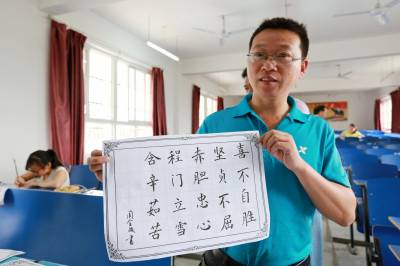 喜不自胜
坚贞不屈
赤胆忠心
程门立雪
含辛茹苦